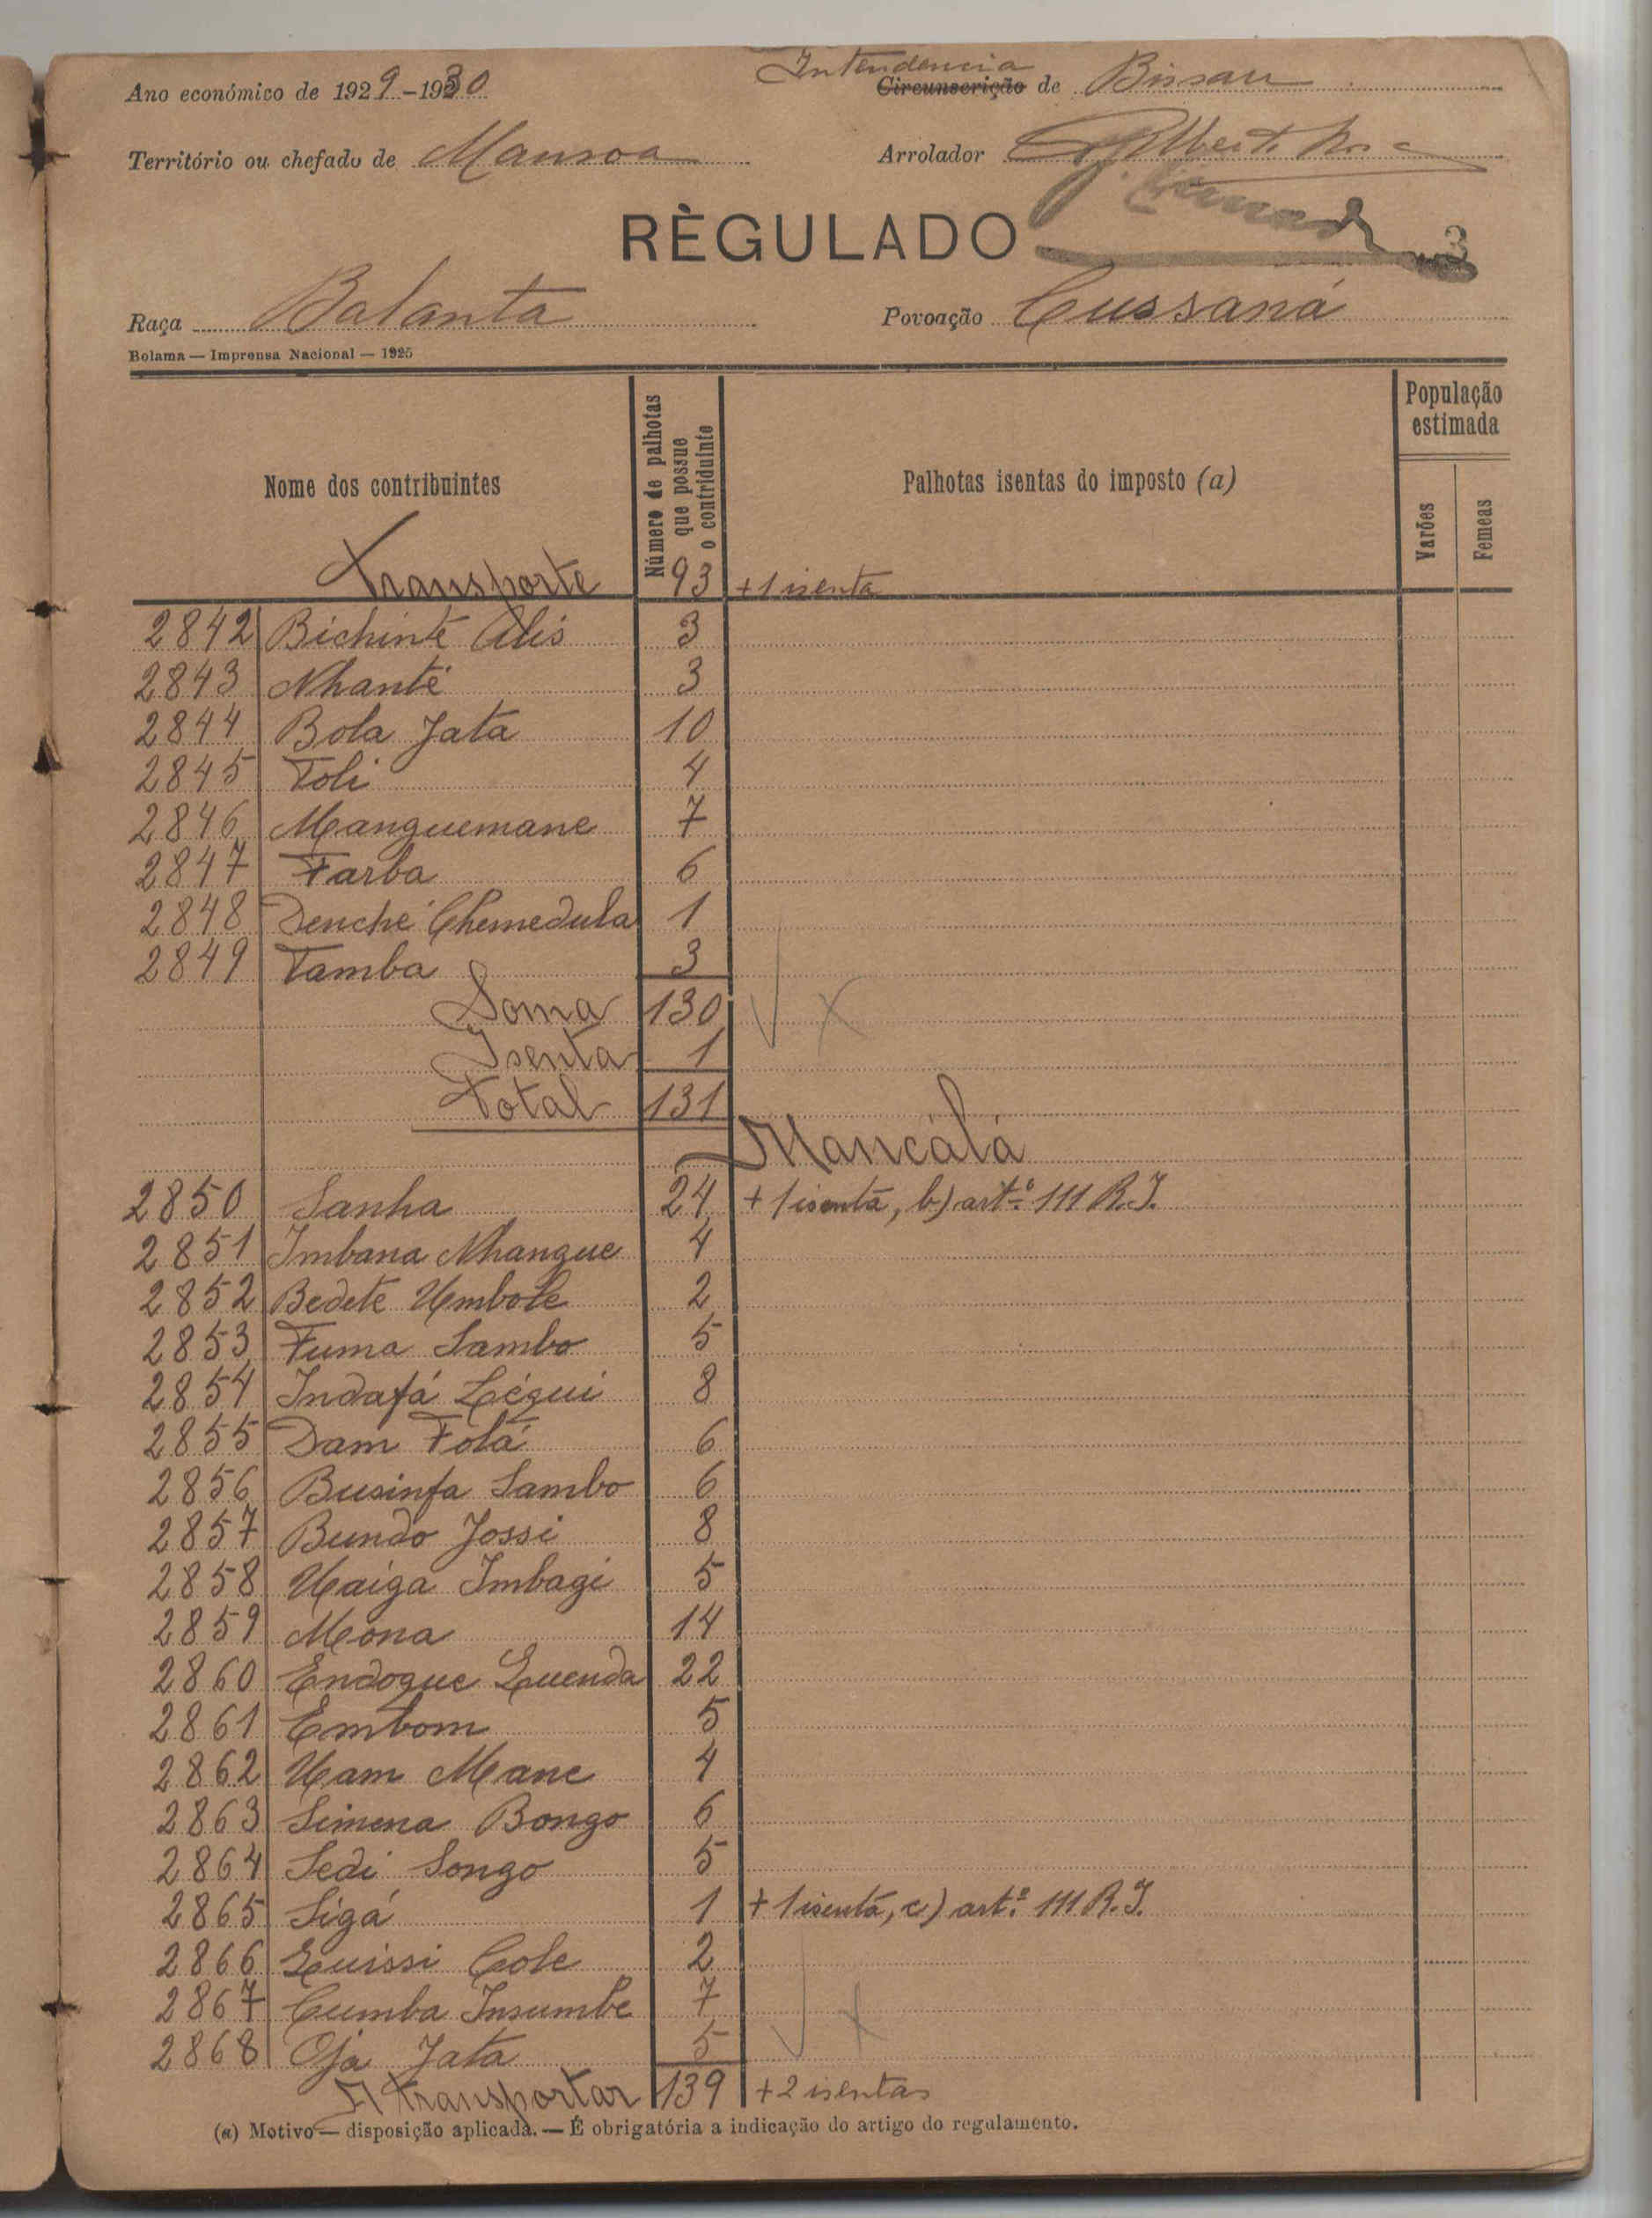 Ano económico de 1929-1930
Intendencia
Circunscrição de Bissau
Território ou chefado de Mansoa
Arrolador Alberto
RÈGULADO
3
Raça Balanta
Povoação Cussaná
Bolama — Imprensa Nacional — 1925
Nome dos contribuintes
Número de palhotas que possue o contriduinte
Palhotas isentas do imposto (a)
População estimada
Varões
Femeas
Transporte 93 +1 isenta
2842 Bichinte Alis 3
2843 Nhanté 3
2844 Bola Jata 10
2845 Toli 4
2846 Manguemane 7
2847 Farba 6
2848 Denché Chemedula 1
2849 Tamba 3
Soma 130
Isenta 1
Total 131
Mancálá
2850 Sanha 24 + 1 isenta, b) artº 111 R.I.
2851 Imbana Nhangue 4
2852 Bedete Umbole 2
2853 Fuma Sambo 5
2854 Indafá Légui 8
2855 Dam Folá 6
2856 Businfa Sambo 6
2857 Bundo Jossi 8
2858 Uaiga Imbagi 5
2859 Mona 14
2860 Endogue Quenda 22
2861 Embom 5
2862 Uam Mane 4
2863 Simena Bongo 6
2864 Sedi Songo 5
2865 Sigá 1 + 1 isenta, c) artº 111 R.I.
2866 Quissi Cole 2
2867 Cumba Insumbe 7
2868 Oja Jata 5
A transportar 139 +2 isentas
(a) Motivo — disposição aplicada. — É obrigatória a indicação do artigo do regulamento.